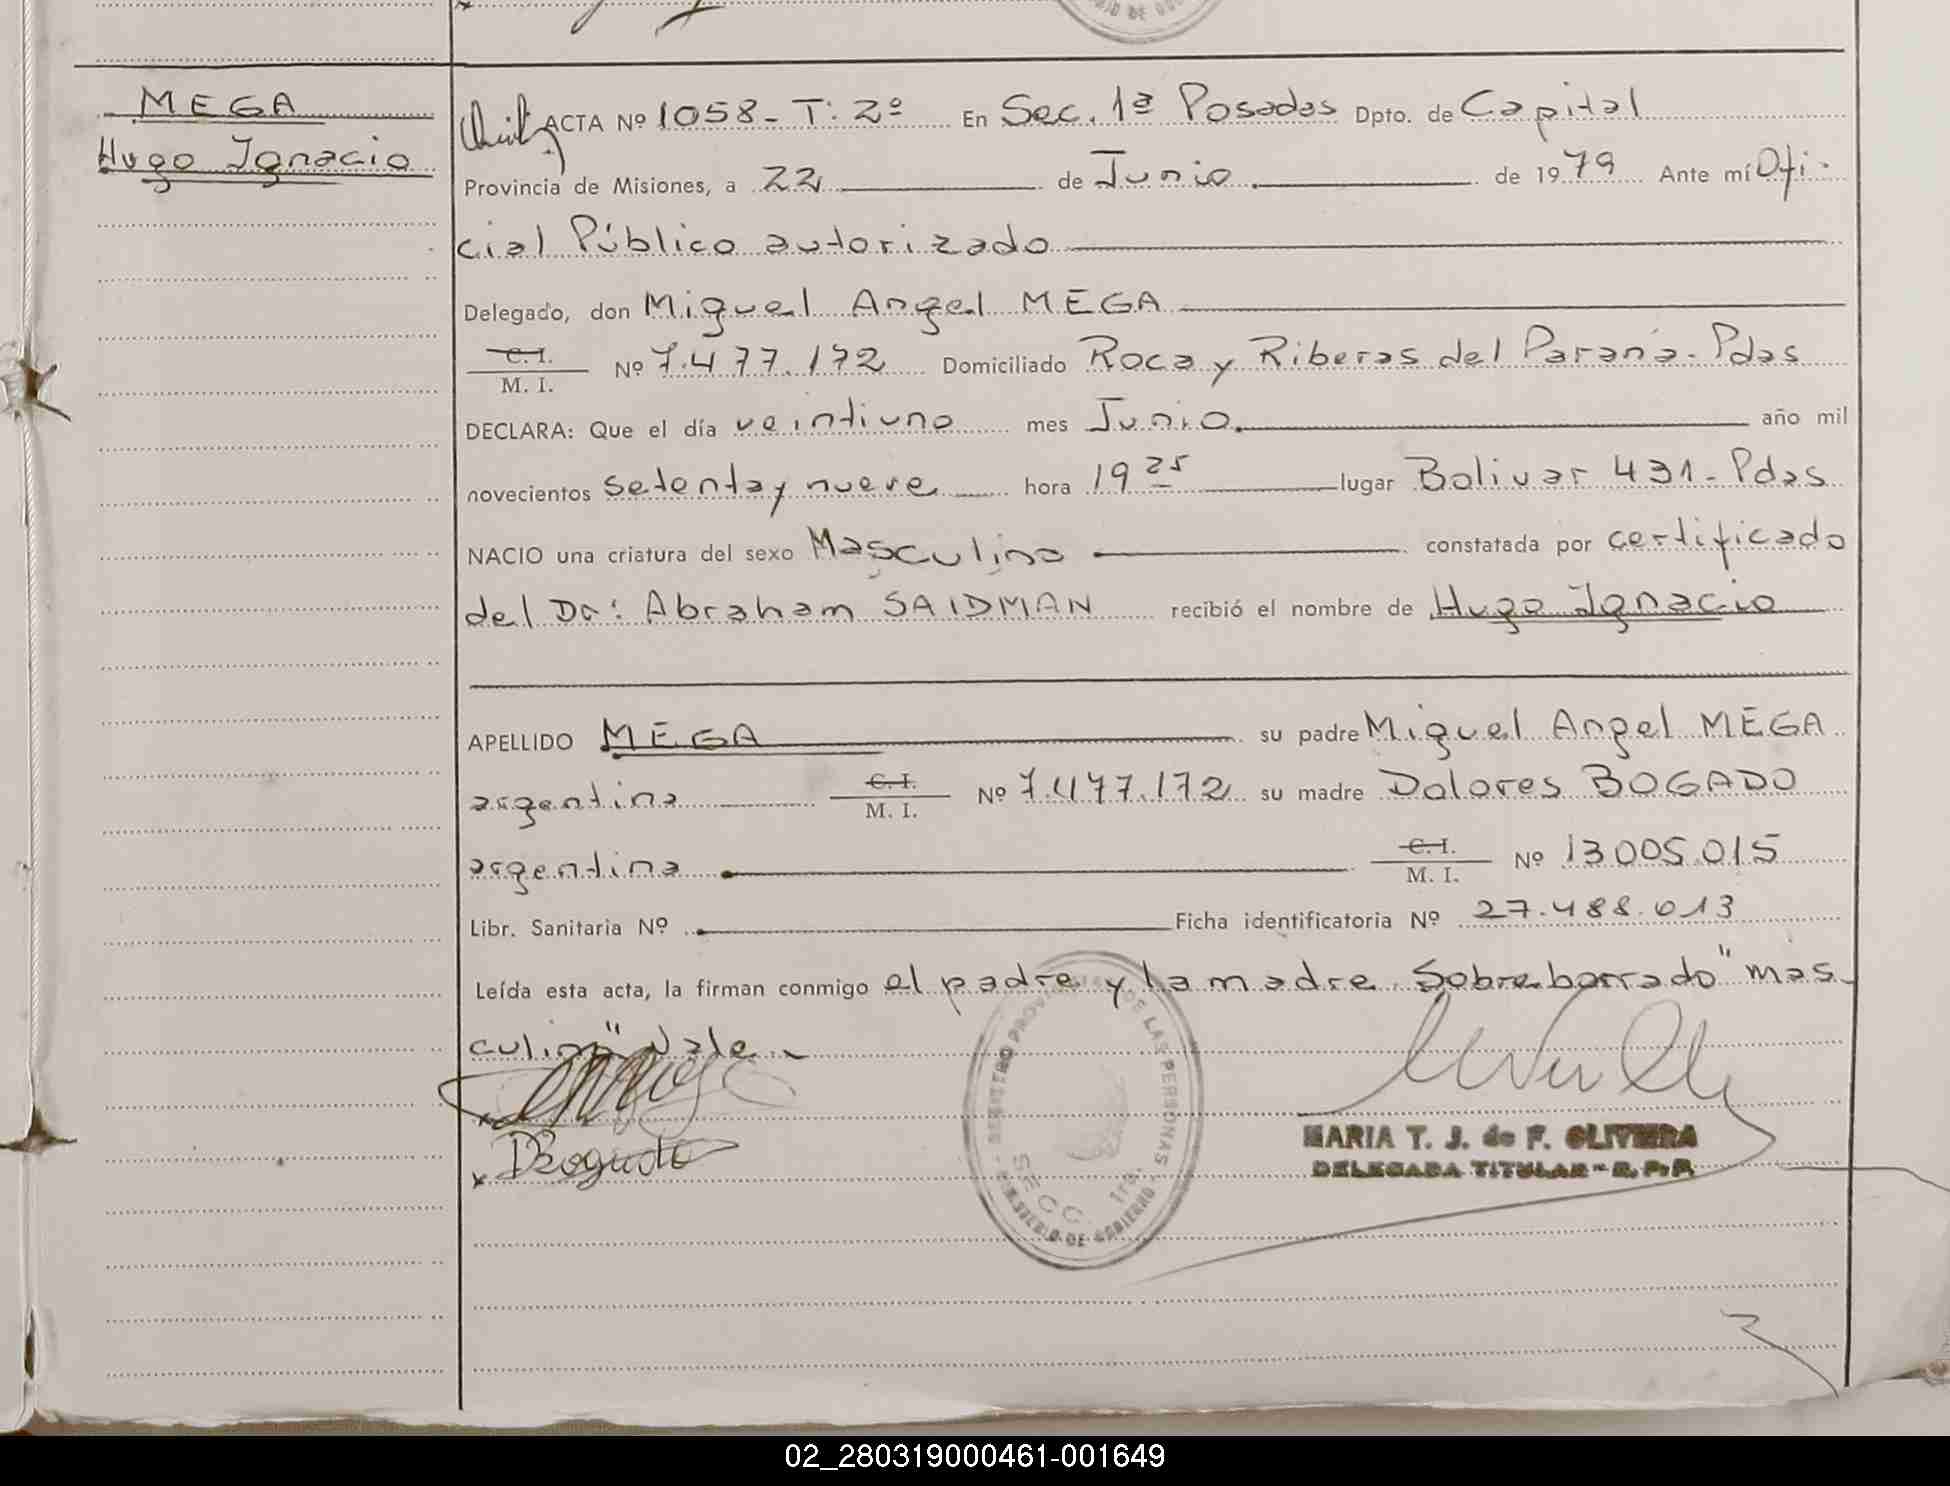 MEGA
Hugo Ignacio
ACTA Nº 1058 - T: 2º En Sec. 1ª Posadas Dpto. de Capital
Provincia de Misiones, a 22 de Junio de 1979 Ante mí Ofi-
cial Público autorizado
Delegado, don Miguel Angel MEGA
C. I.
M. I. Nº 7.477.172 Domiciliado Roca y Riberas del Paraná - Pdas
DECLARA: Que el día veintiuno mes Junio. año mil
novecientos setenta y nueve hora 19 25 lugar Bolivar 431 - Pdas
NACIO una criatura del sexo Masculino constatada por certificado
del Dr: Abraham SAIDMAN recibió el nombre de Hugo Ignacio
APELLIDO MEGA su padre Miguel Angel MEGA
argentina C. I. M. I. Nº 7.477.172 su madre Dolores BOGADO
argentina C. I. M. I. Nº 13005.015
Libr. Sanitaria Nº Ficha identificatoria Nº 27.488.013
Leída esta acta, la firman conmigo el padre y la madre. Sobreborrado "mas-
culino" Vale.
x
x DBogado
REGISTRO PROVINCIAL DE LAS PERSONAS
SECC. 1ra.
MARIA T. J. de F. OLIVEIRA
DELEGADA TITULAR - R. P. P.
02_280319000461-001649